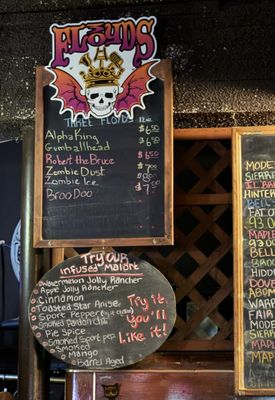 FLOYDS
THREE FLOYDS 12oz
AlphaKing $6.50
Gumballhead $6.50
Robert the Bruce $6.50
Zombie Dust
Zombie Ice
BrooDoo
Try our
Infused Malört
Watermelon Jolly Rancher
Apple Jolly Rancher
Cinnamon
Toasted Star Anise
Spore Pepper
Smoked
Pie Spice
Smoked Sport pep
Smoked
Mango
Barrel Aged
Try it
you'll
like it!
MODEL
SIERRA
HINTER
BELL
FAT
93.0
MAPLE
93.0
BELL
BROO
HIDD
DOVE
ABOM
WARP
FAIR
MODE
SIERRA
MAPL